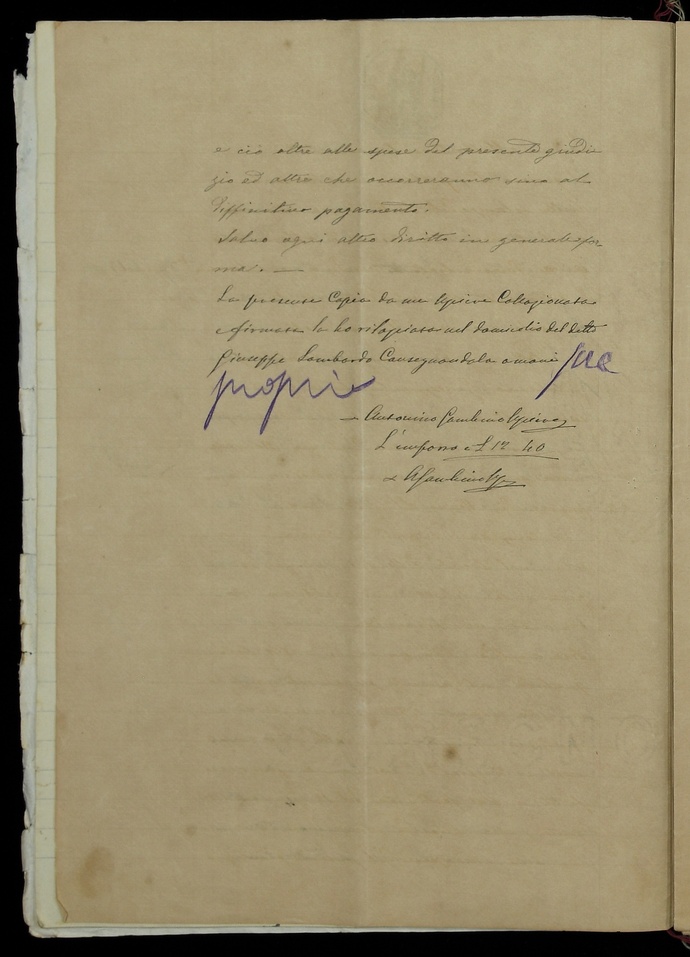 e ciò oltre alle spese del presente giudi
zio ed altre che occorreranno sino al
diffinitivo pagamento.
Salvo ogni altro diritto in generale for
ma. —
La presente Copia da me Usciere Collazionata
e firmata la ho rilasciata nel domicilio del detto
Giuseppe Lombardo Consegnandola a mani sue
proprie
— Antonino Gambino Usciere
L'importo è £ 12 40
A Gambino Us